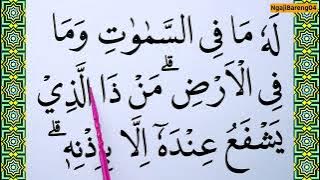 NgajiBareng04
لَهٗ مَا فِى السَّمٰوٰتِ وَمَا
فِى الْاَرْضِۗ مَنْ ذَا الَّذِيْ
يَشْفَعُ عِنْدَهٗٓ اِلَّا بِاِذْنِهٖۗ